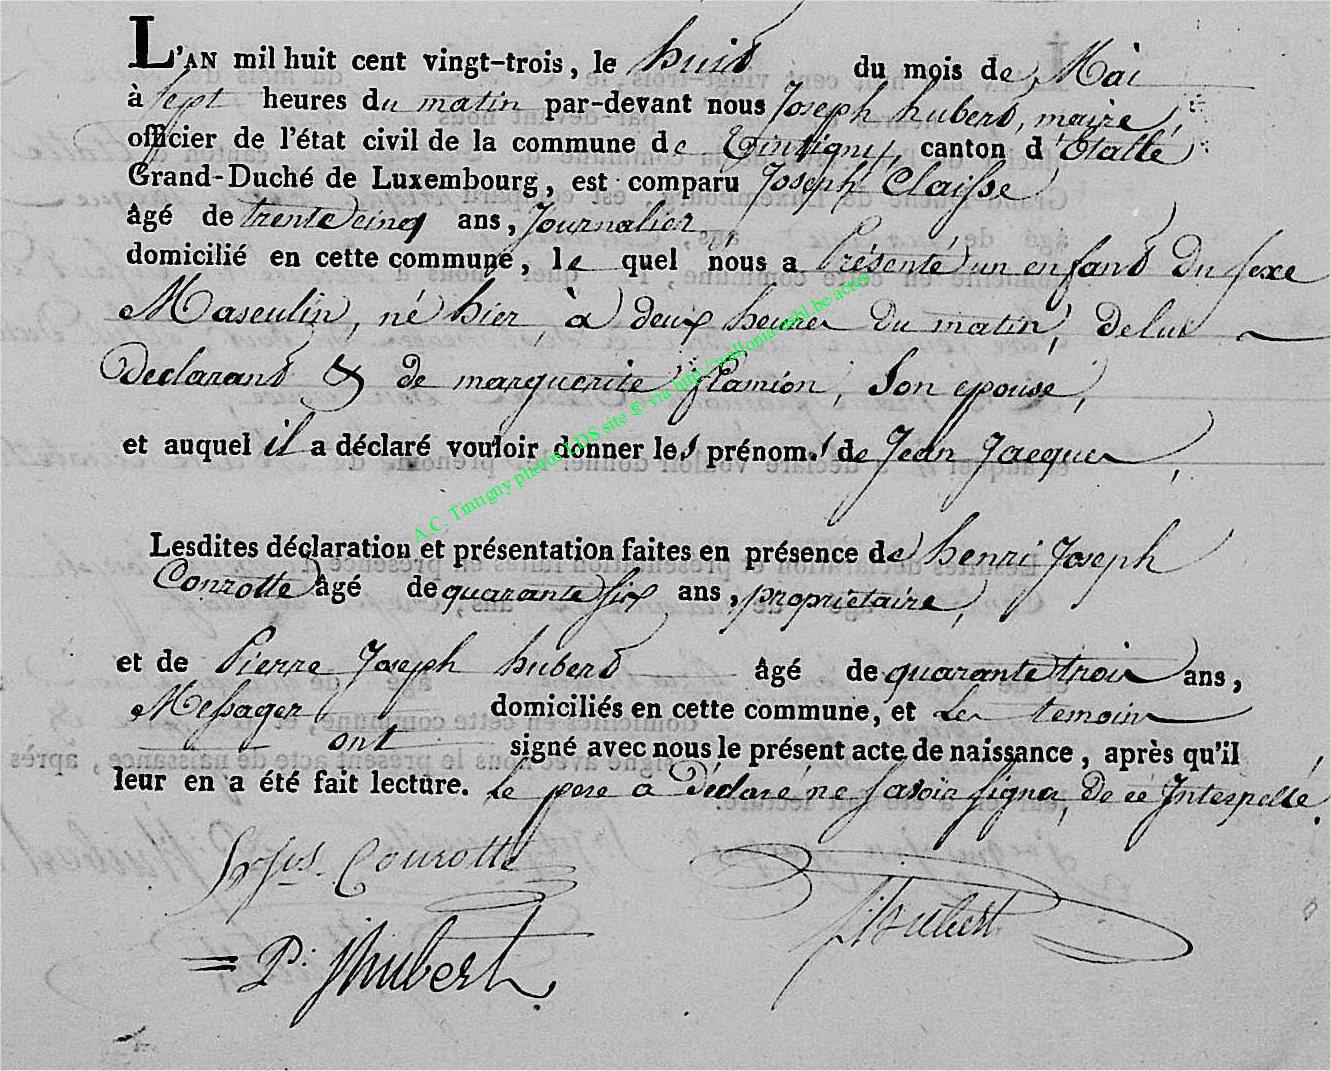 L'AN mil huit cent vingt-trois, le huit du mois de Mai
à sept heures du matin par-devant nous Joseph hubert, maire,
officier de l'état civil de la commune de Tintigny, canton d'Etalle
Grand-Duché de Luxembourg, est comparu Joseph Claisse
âgé de trente cinq ans, Journalier,
domicilié en cette commune, le quel nous a Présenté un enfant Du sexe
Masculin, né hier, à deux heures Du matin, De lui
Declarant & de marguerite flamion, Son epouse,
et auquel il a déclaré vouloir donner les prénoms de Jean Jacques,
Lesdites déclaration et présentation faites en présence de henri Joseph
Conrotte âgé de quarante six ans, proprietaire,
et de Pierre Joseph hubert âgé de quarante trois ans,
Messager domiciliés en cette commune, et Les temoins
ont signé avec nous le présent acte de naissance, après qu'il
leur en a été fait lecture. Le pere a Déclaré ne savoir signer, De ce Interpellé.
Conrotte
Hubert
P. J hubert.
A.C. Tintigny photos LDS site ® via http://wallonia-asbl.be/actes